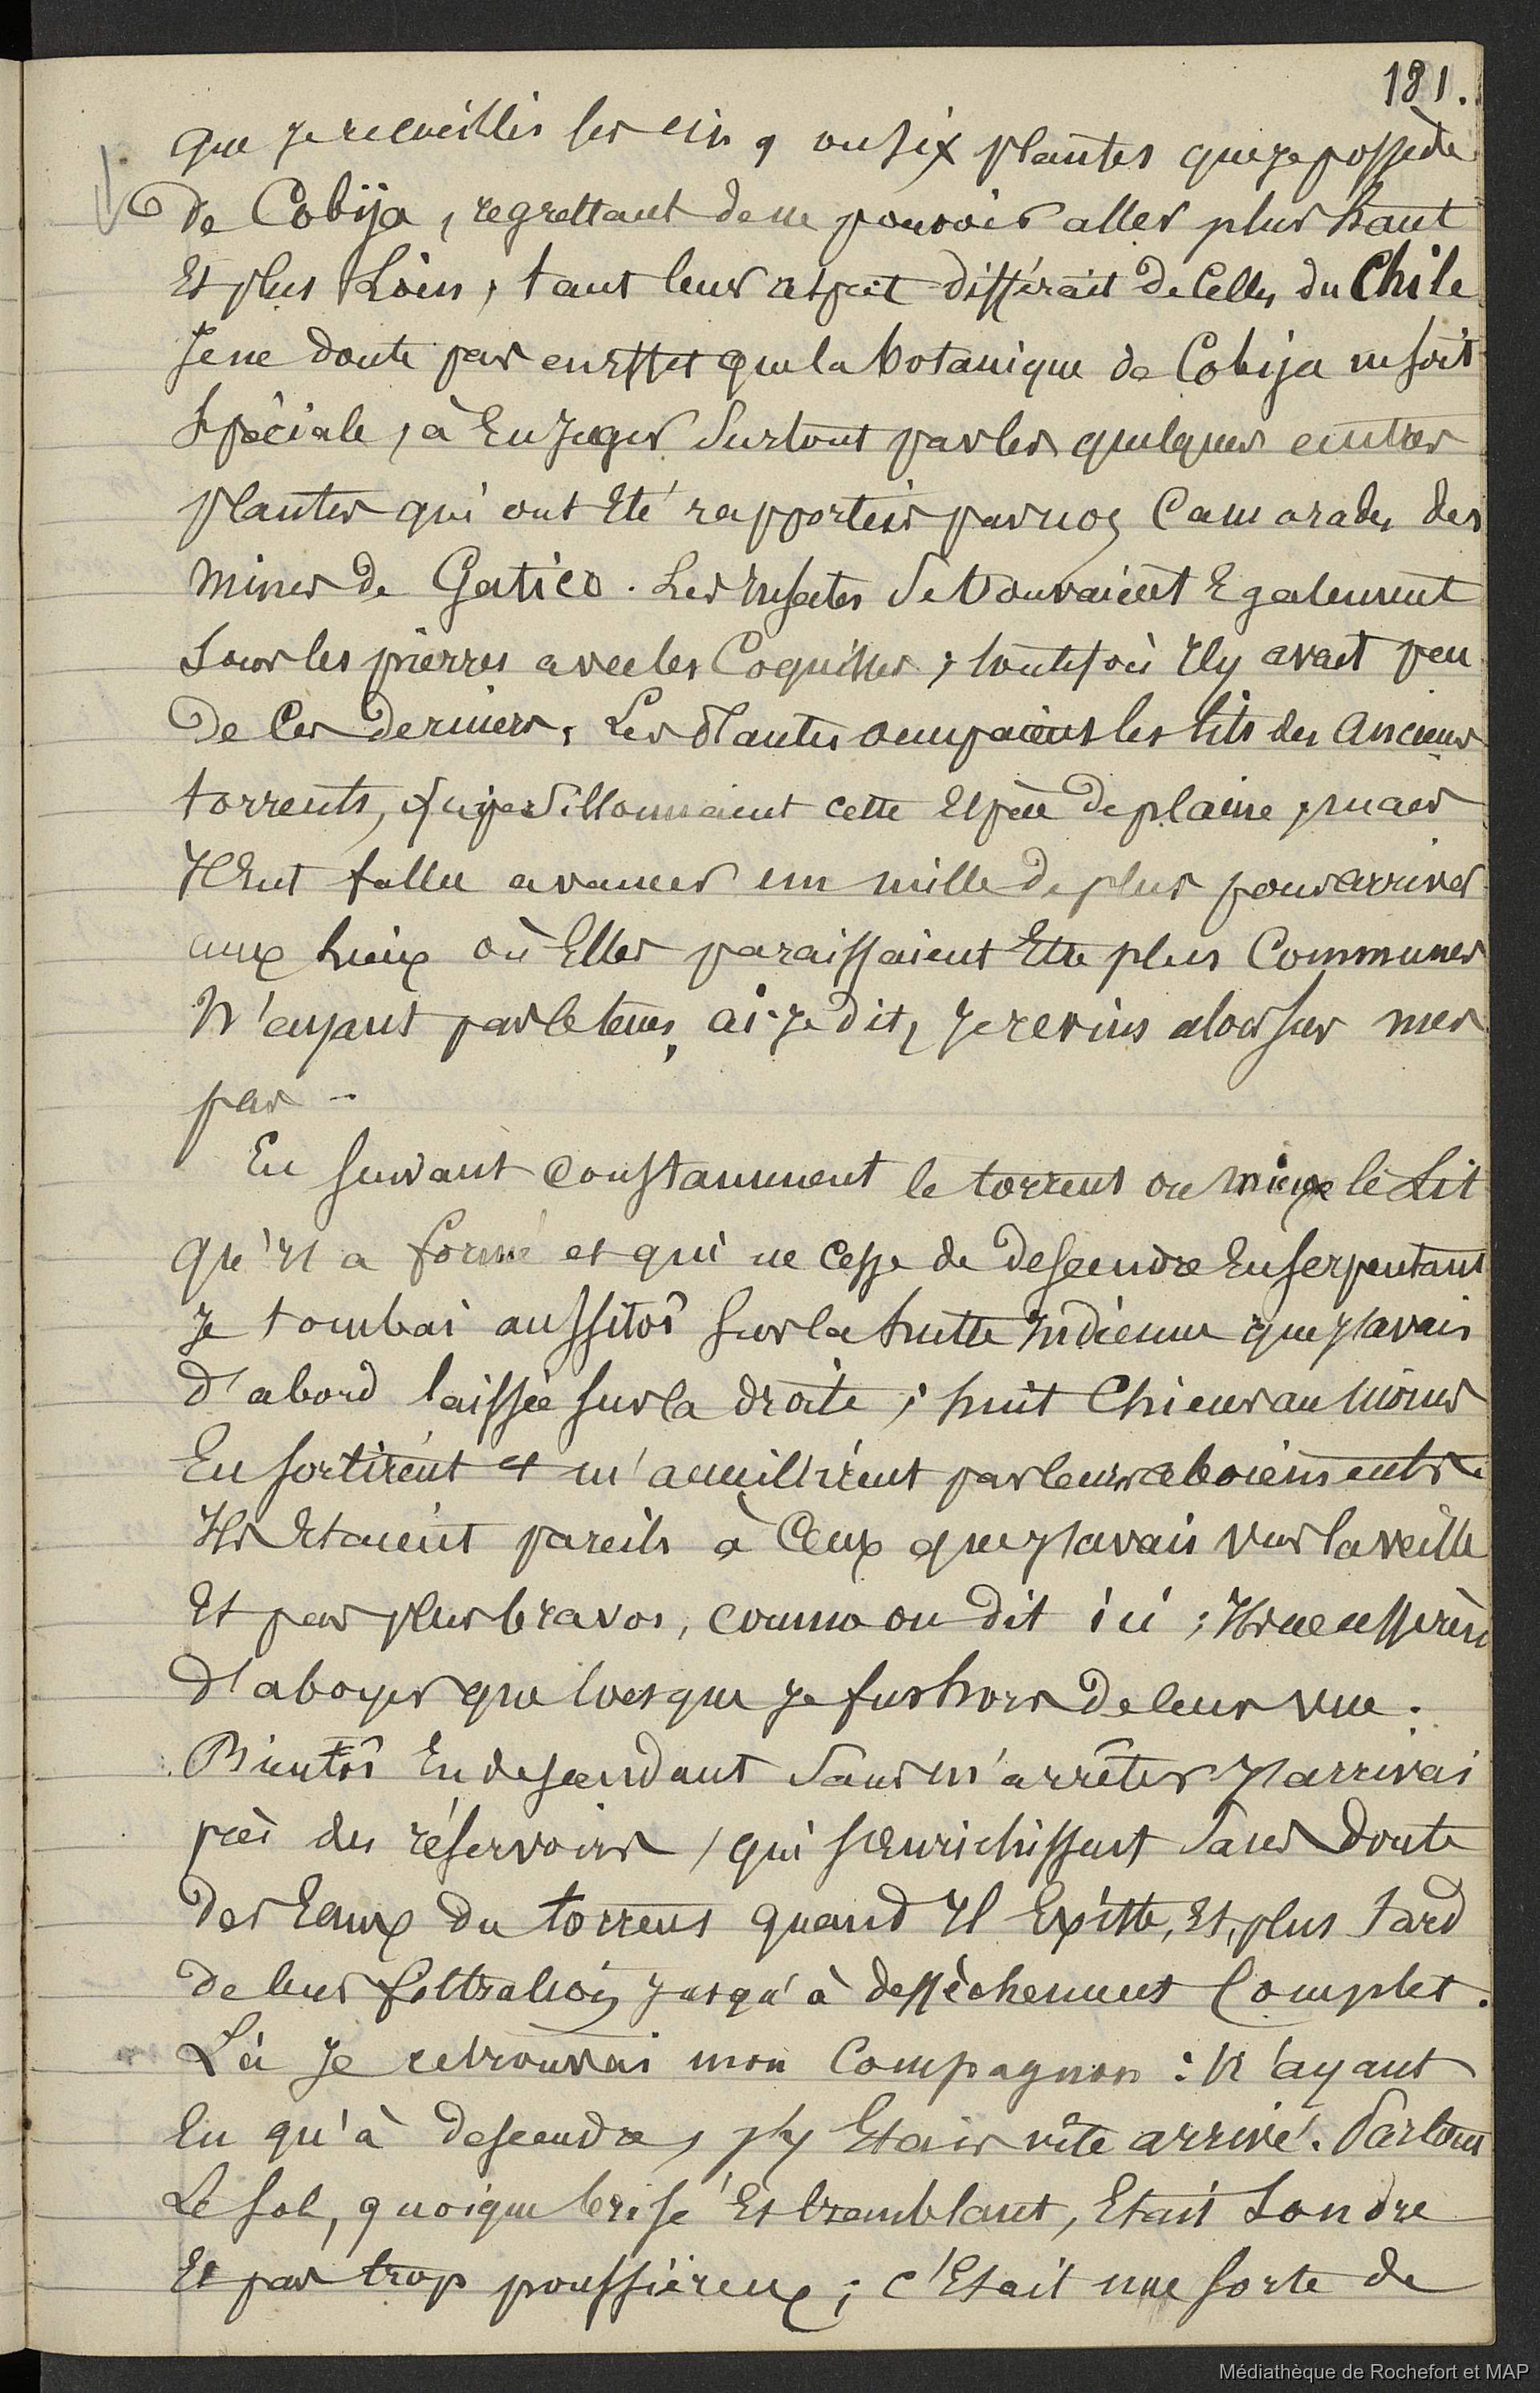 181.
que je recueillis les cinq ou six plantes que je possède
de Cobija, regrettant de ne pouvoir aller plus haut
Et plus Loin, tant leur aspect différait de Celles du Chile
Je ne doute pas en effet que la botanique de Cobija ne soit
Spéciale, à En juger Surtout par les quelques autres
plantes qui ont Eté rapportées par nos Camarades des
mines de Gatico. Les Insectes Se trouvaient Egalement
Sous les pierres avec les Coquilles ; toutefois Il y avait peu
De Ces derniers. Les Plantes occupaient les lits des Anciens
torrents, qui Sillonnaient cette Espèce de plaine, mais
Il Eut fallu avancer un mille de plus pour arriver
aux Lieux où Elles paraissaient Etre plus Communes
N'ayant pas le tems, ai-je dit, je revins alors sur mes
pas -
En suivant constamment le torrent ou mieux le Lit
qu'Il a formé et qui ne cesse de descendre En serpentant
Je tombai aussitôt sur la hutte Indienne que j'avais
d'abord laissée sur la droite ; huit Chiens au moins
En sortirent et m'accueillirent par leurs aboiements.
Ils Etaient pareils à Ceux que j'avais vus la veille
Et pas plus bravos, comme on dit ici ; Ils ne cessèrent
d'aboyer que lorsque je fus hors de leur vue.
Bientôt En descendant Sans m'arrêter j'arrivai
près des réservoirs, qui s'Enrichissent Sans Doute
des Eaux du torrent quand Il Existe, Et, plus tard
de leur filtration jusqu'à dessèchement Complet.
Là Je retrouvai mon Compagnon : N'ayant
Eu qu'à descendre, j'y Etais vite arrivé. Partout
Le Sol, quoique brisé Et tremblant, Etait Tendre
Et pas trop poussièreux ; c'Etait une sorte de
Médiathèque de Rochefort et MAP